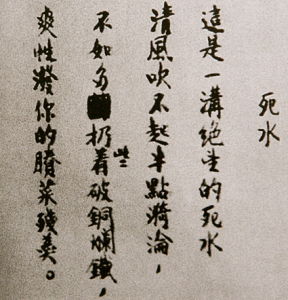 死水
這是一溝絕望的死水
清風吹不起半點漪淪，
不如多扔着些破銅爛鐵，
爽性潑你的賸菜殘羹。